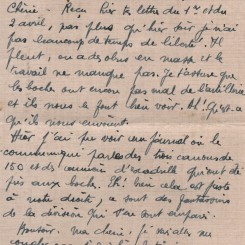 Chérie - Reçu hier ta lettre du 1er et du
2 avril, pas plus qu'hier soir je n'ai
pas beaucoup de temps de liberté. Il
pleut, on a des obus en masse et le
travail ne manque pas. Je t'assure que
les boches ont encore pas mal de l'artillerie
et ils nous le font bien voir. Ah! Qu'est-ce
qu'ils nous envoient.
Hier j'ai pu voir un journal où le
communiqué parle des trois canons de
150 et des camions d'escadrille qui ont été
pris aux boches. Eh! bien cela est juste
à notre droite, ce sont des fantassins
de la division qui s'en sont emparé.
Bonsoir, ma chérie, je m'en vais me